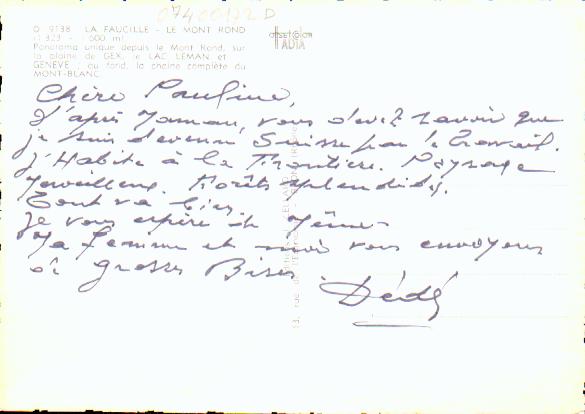 07400172 D
D 9138 LA FAUCILLE - LE MONT ROND
(1 323 - 1 600 m)
Panorama unique depuis le Mont Rond, sur
la plaine de GEX, le LAC LEMAN et
GENEVE ; au fond, la chaîne complète du
MONT-BLANC
offset color
ADIA
Chère Pauline,
D'après Maman, vous devez savoir que
je suis devenu Suisse par le Travail.
J'Habite à la Frontière. Paysage
Merveilleux. Forêts splendides.
Tout va bien.
Je vous espère de Même.
Ma femme et moi vous envoyons
de grosses Bises.
Dédé
13, rue de l'E